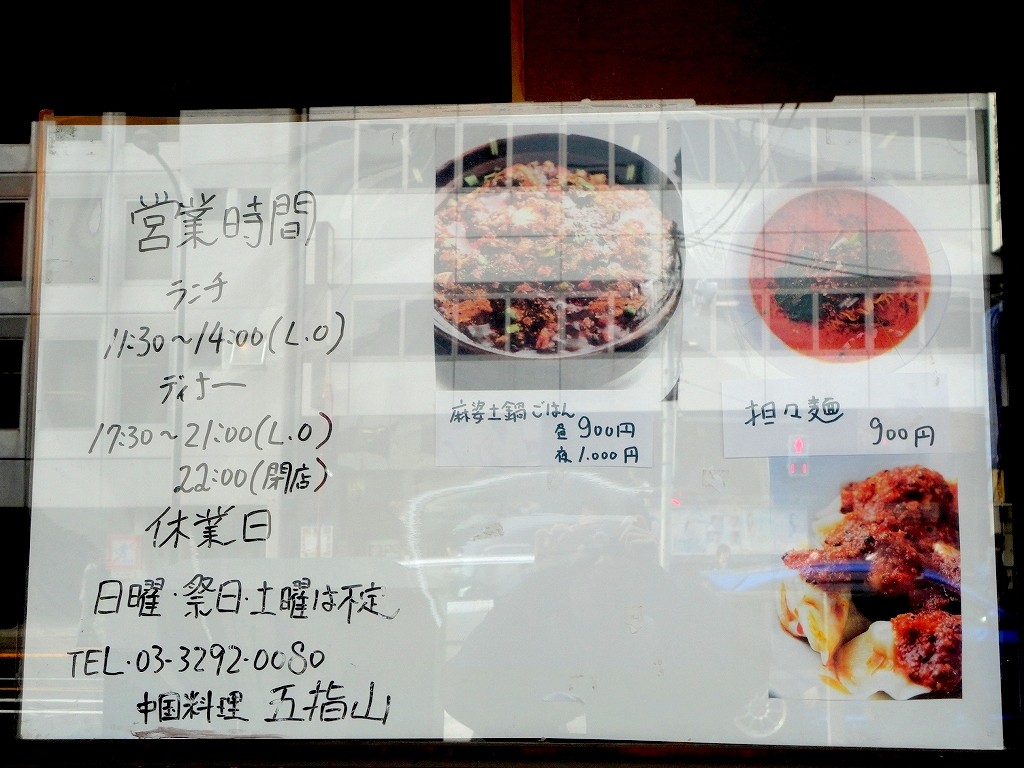 営業時間
ランチ
11:30～14:00(L.O)
ディナー
17:30～21:00(L.O)
22:00(閉店)
休業日
日曜・祭日・土曜は不定
TEL・03-3292-0080
中国料理 五指山
麻婆土鍋ごはん
昼 900円
夜 1.000円
担々麺
900円